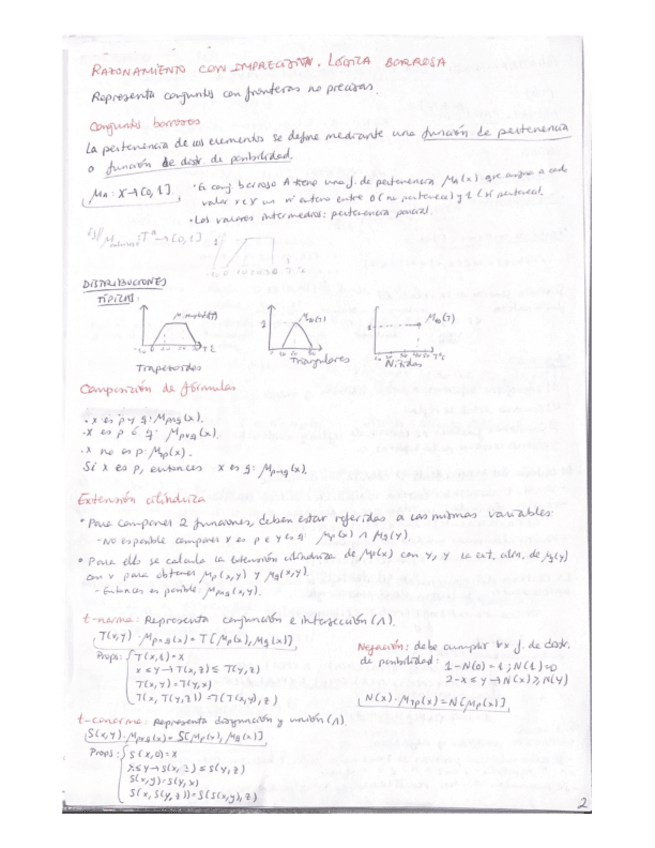 RAZONAMIENTO CON IMPRECISIÓN. LÓGICA BORROSA
Representa conjuntos con fronteras no precisas.
Conjuntos borrosos
La pertenencia de los elementos se define mediante una función de pertenencia
o función de distr. de posibilidad.
μA: X→[0,1]
· Un conj. borroso A tiene una f. de pertenencia μA(x) que asigna a cada
valor x∈X un nº entero entre 0 (no pertenece) y 1 (sí pertenece).
· Los valores intermedios: pertenencia parcial.
DISTRIBUCIONES
TÍPICAS:
Trapezoides
Triangulares
Nítidas
Composición de fórmulas
· x es p y q: μp∧q(x).
· x es p ó q: μp∨q(x).
· x no es p: μ¬p(x).
Si x es p, entonces x es q: μp→q(x).
Extensión cilíndrica
· Para componer 2 funciones, deben estar referidas a las mismas variables:
- No es posible componer x es p e y es q: μp(x) ∧ μq(y).
· Para ello se calcula la extensión cilíndrica de μp(x) con y, y la ext. cilín. de μq(y)
con x para obtener μp(x,y) y μq(x,y).
- Entonces es posible: μp∧q(x,y).
t-norma: Representa conjunción e intersección (∧).
T(x,y): μp∧q(x) = T[μp(x), μq(x)]
Props: T(x,1)=x
x≤y→T(x,z)≤T(y,z)
T(x,y)=T(y,x)
T(x,T(y,z))=T(T(x,y),z)
Negación: debe cumplir ∀x f. de distr.
de posibilidad: 1-N(0)=1; N(1)=0
2-x≤y→N(x)≥N(y)
N(x): μ¬p(x)=N[μp(x)]
t-conorma: Representa disyunción y unión (∧)
S(x,y): μp∨q(x)=S[μp(x), μq(x)]
Props: S(x,0)=x
x≤y→S(x,z)≤S(y,z)
S(x,y)=S(y,x)
S(x,S(y,z))=S(S(x,y),z)
2